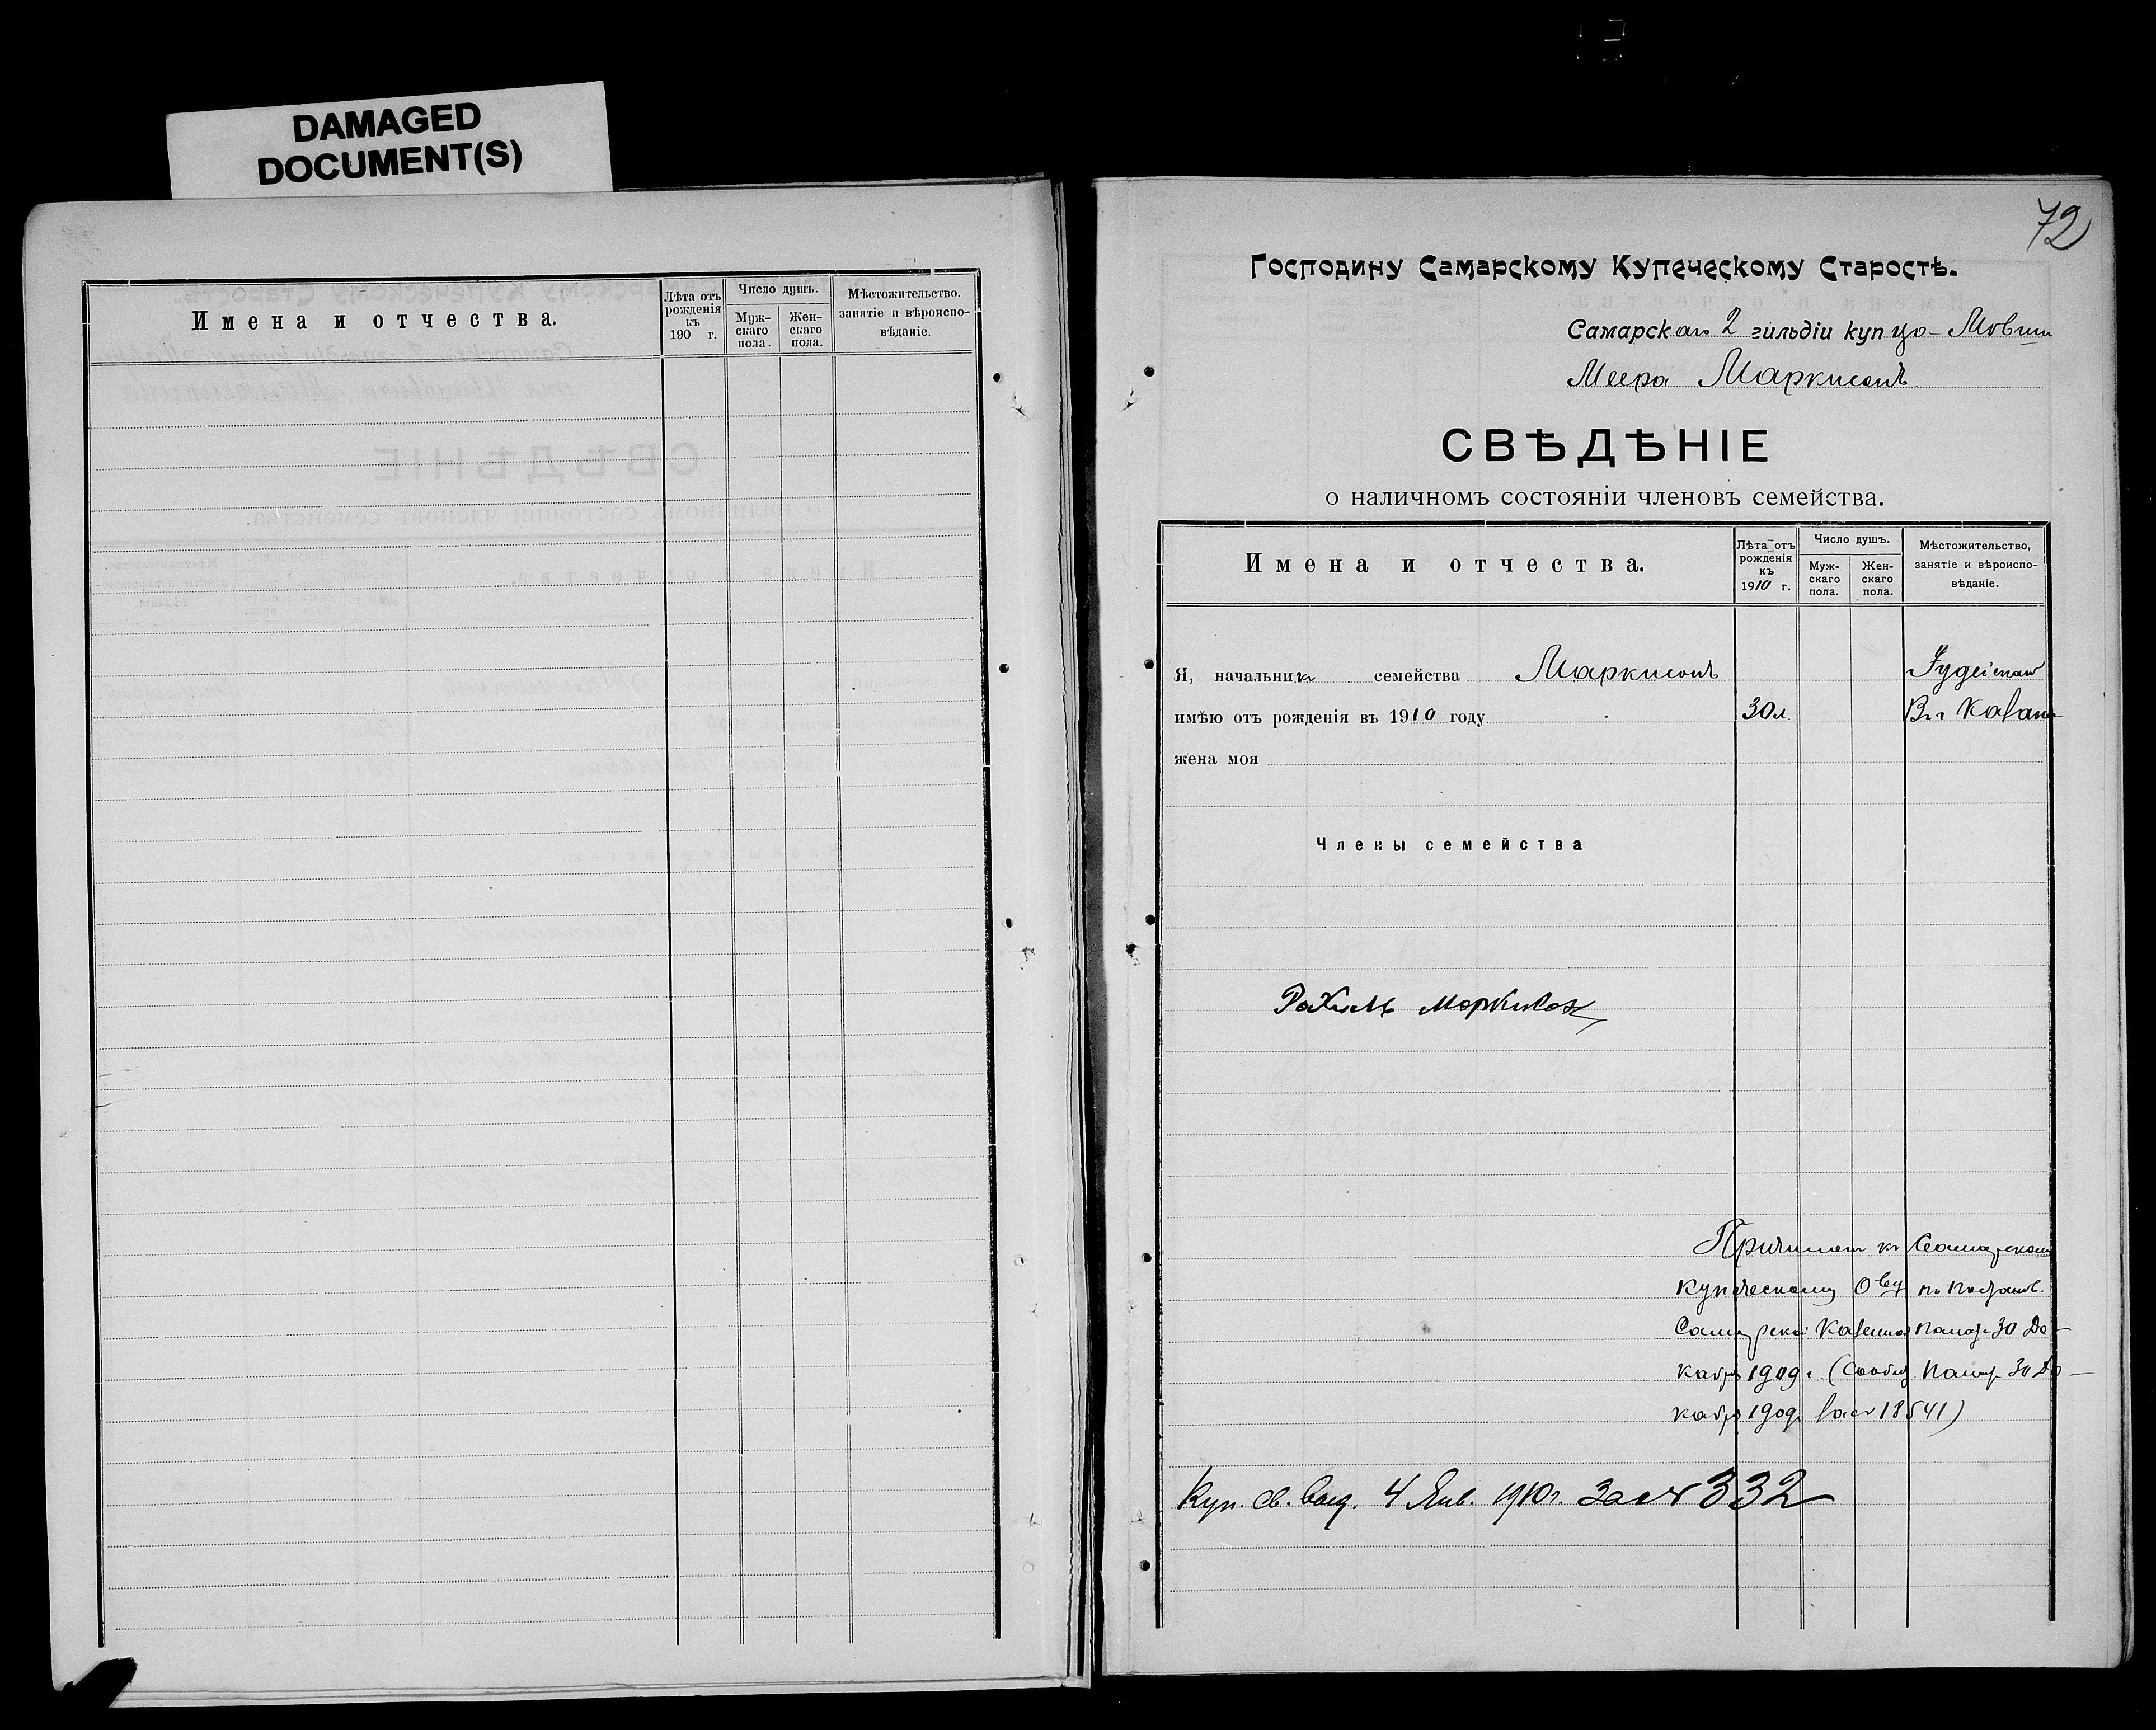 DAMAGED
DOCUMENT(S)
Имена и отчества.
Лѣта отъ рожденія къ 190 г.
Число душъ.
Муж-
скаго
пола.
Жен-
скаго
пола.
Мѣстожительство.
занятіе и вѣроиспо-
вѣданіе.
72
Господину Самарскому Купеческому Старостѣ.
Самарскаго 2 гильдіи купца Мовши
Меера Маркисонъ
СВѢДѢНІЕ
о наличномъ состояніи членовъ семейства.
Имена и отчества.
Лѣта отъ
рожденія
къ
1910 г.
Число душъ.
Муж-
скаго
пола.
Жен-
скаго
пола.
Мѣстожительство,
занятіе и вѣроиспо-
вѣданіе.
Я, начальник семейства Маркисонъ
имѣю отъ рожденія въ 1910 году 30 л. Въ г.
жена моя
Члены семейства
Причислен к Самарскому
купеческому О-ву по постановл.
Самарской Казенной Палаты 30 Де-
кабря 1909 г. (Сообщ. Палаты 30 Де-
кабря 1909 за № 18541)
Куп. св. выд. 4 Янв. 1910 г. за № 332